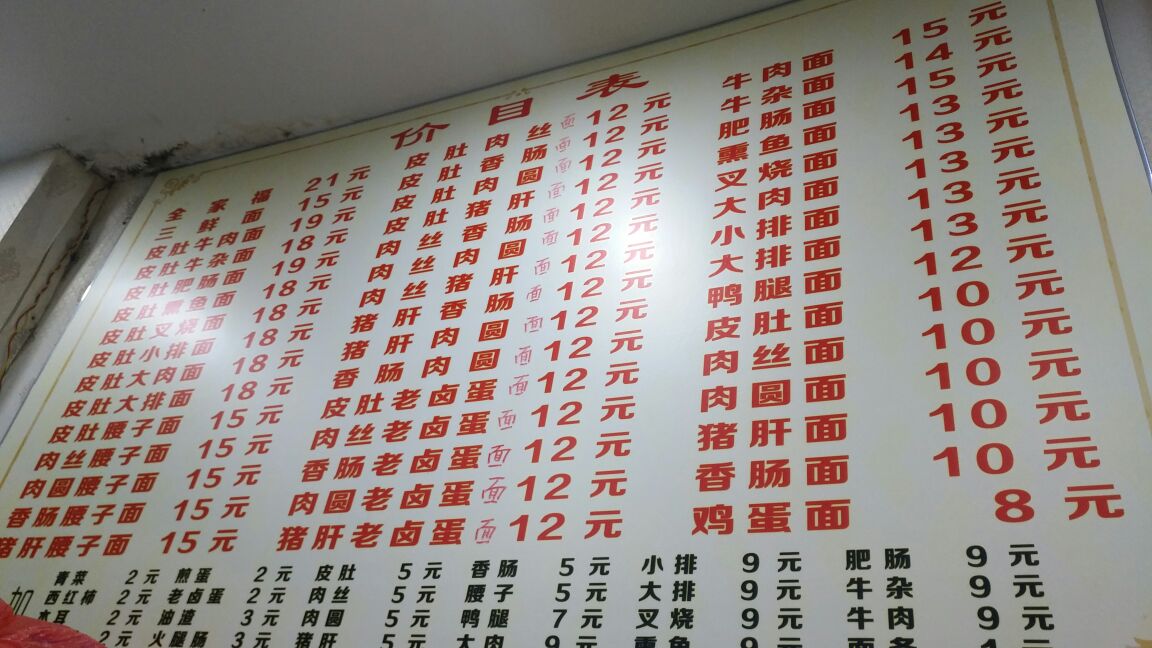 价目表
全家福 21元
三鲜面 15元
皮肚牛肉面 19元
皮肚牛杂面 18元
皮肚肥肠面 19元
皮肚熏鱼面 18元
皮肚叉烧面 18元
皮肚小排面 18元
皮肚大肉面 18元
皮肚大排面 18元
皮肚腰子面 15元
肉丝腰子面 15元
肉圆腰子面 15元
香肠腰子面 15元
猪肝腰子面 15元
皮肚肉丝面 12元
皮肚香肠面 12元
皮肚肉圆面 12元
皮肚猪肝面 12元
肉丝香肠面 12元
肉丝肉圆面 12元
肉丝猪肝面 12元
猪肝香肠面 12元
猪肝肉圆面 12元
香肠肉圆面 12元
皮肚老卤蛋面 12元
肉丝老卤蛋面 12元
香肠老卤蛋面 12元
肉圆老卤蛋面 12元
猪肝老卤蛋面 12元
牛肉面 15元
牛杂面 14元
肥肠面 15元
熏鱼面 13元
叉烧面 13元
大肉面 13元
小排面 13元
大排面 13元
鸭腿面 12元
皮肚面 10元
肉丝面 10元
肉圆面 10元
猪肝面 10元
香肠面 10元
鸡蛋面 8元
加
青菜 2元 煎蛋 2元 皮肚 5元 香肠 5元 小排 9元 肥肠 9元
西红柿 2元 老卤蛋 2元 肉丝 5元 腰子 5元 大排 9元 牛杂 9元
木耳 2元 油渣 3元 肉圆 5元 鸭腿 7元 叉烧 9元 牛肉 9元
2元 火腿肠 3元 猪肝 5元 大肉 9元 熏鱼 9元 面条